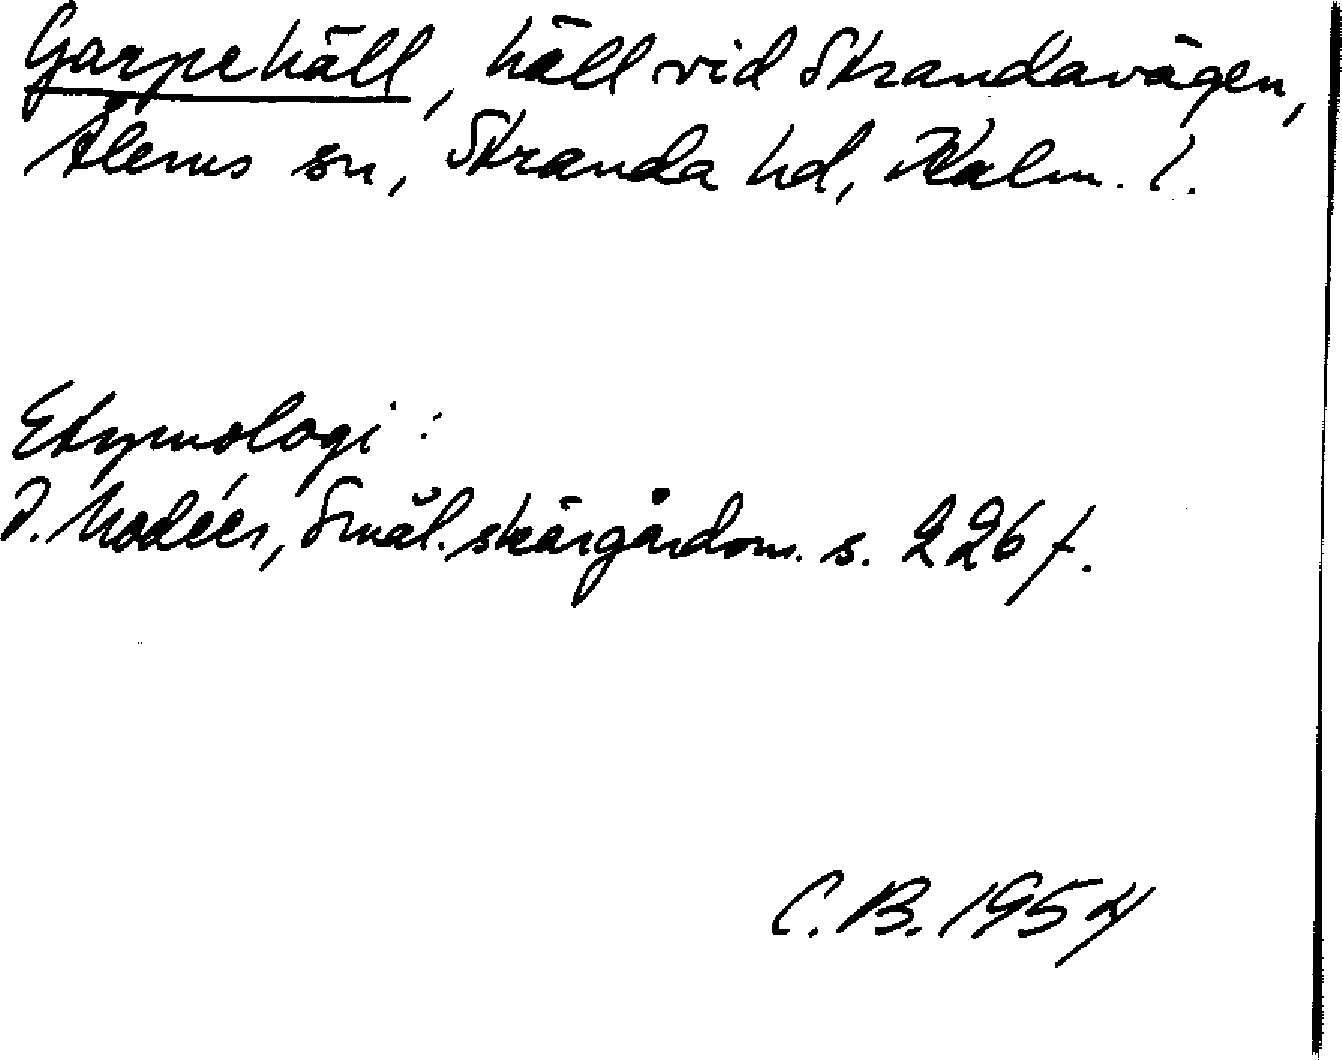 Garpehäll, häll vid Strandavägen,
Ålems sn, Stranda hd, Kalm. l.
Etymologi:
I. Modéer, Smål. skärgårdsn. s. 226 f.
C. B. 1954